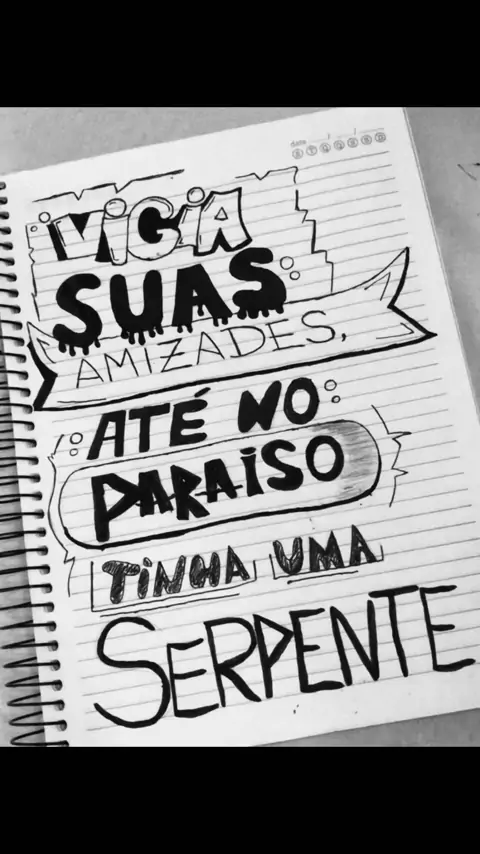 date / /
S T Q Q S S D
VIGIA
SUAS
AMIZADES,
ATÉ NO
PARAISO
TINHA UMA
SERPENTE